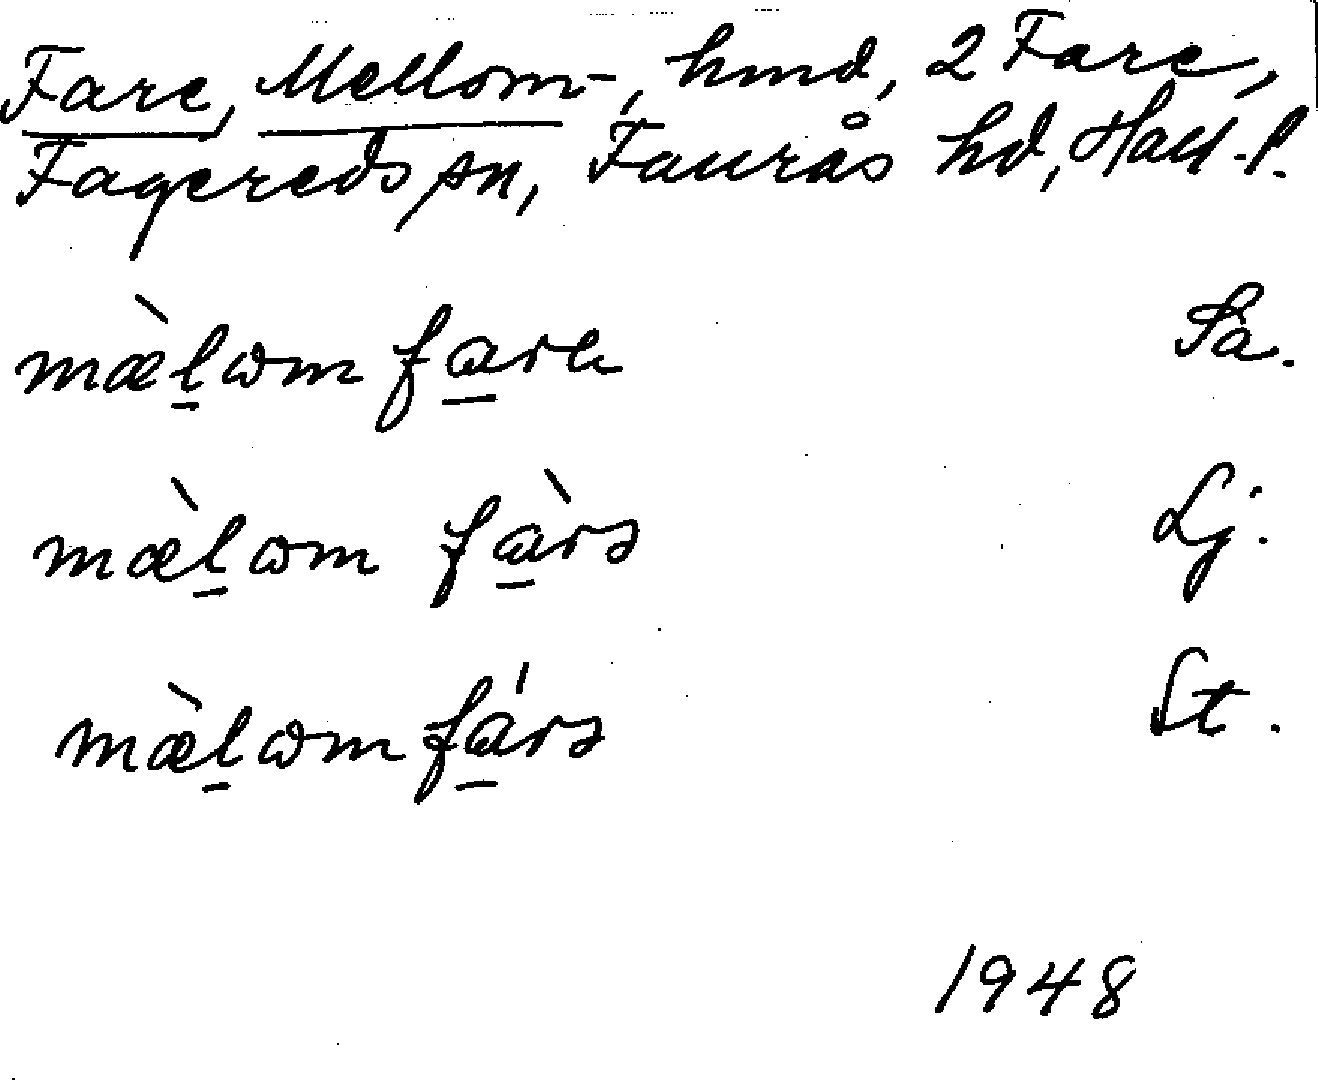 Fare, Mellom-, hmd, 2 Fare,
Fagereds sn, Faurås hd, Hall. l.
mæ̀lωm fare Sa.
mæ̀lωm fàrə Lj.
mæ̀lωm fárə St.
1948